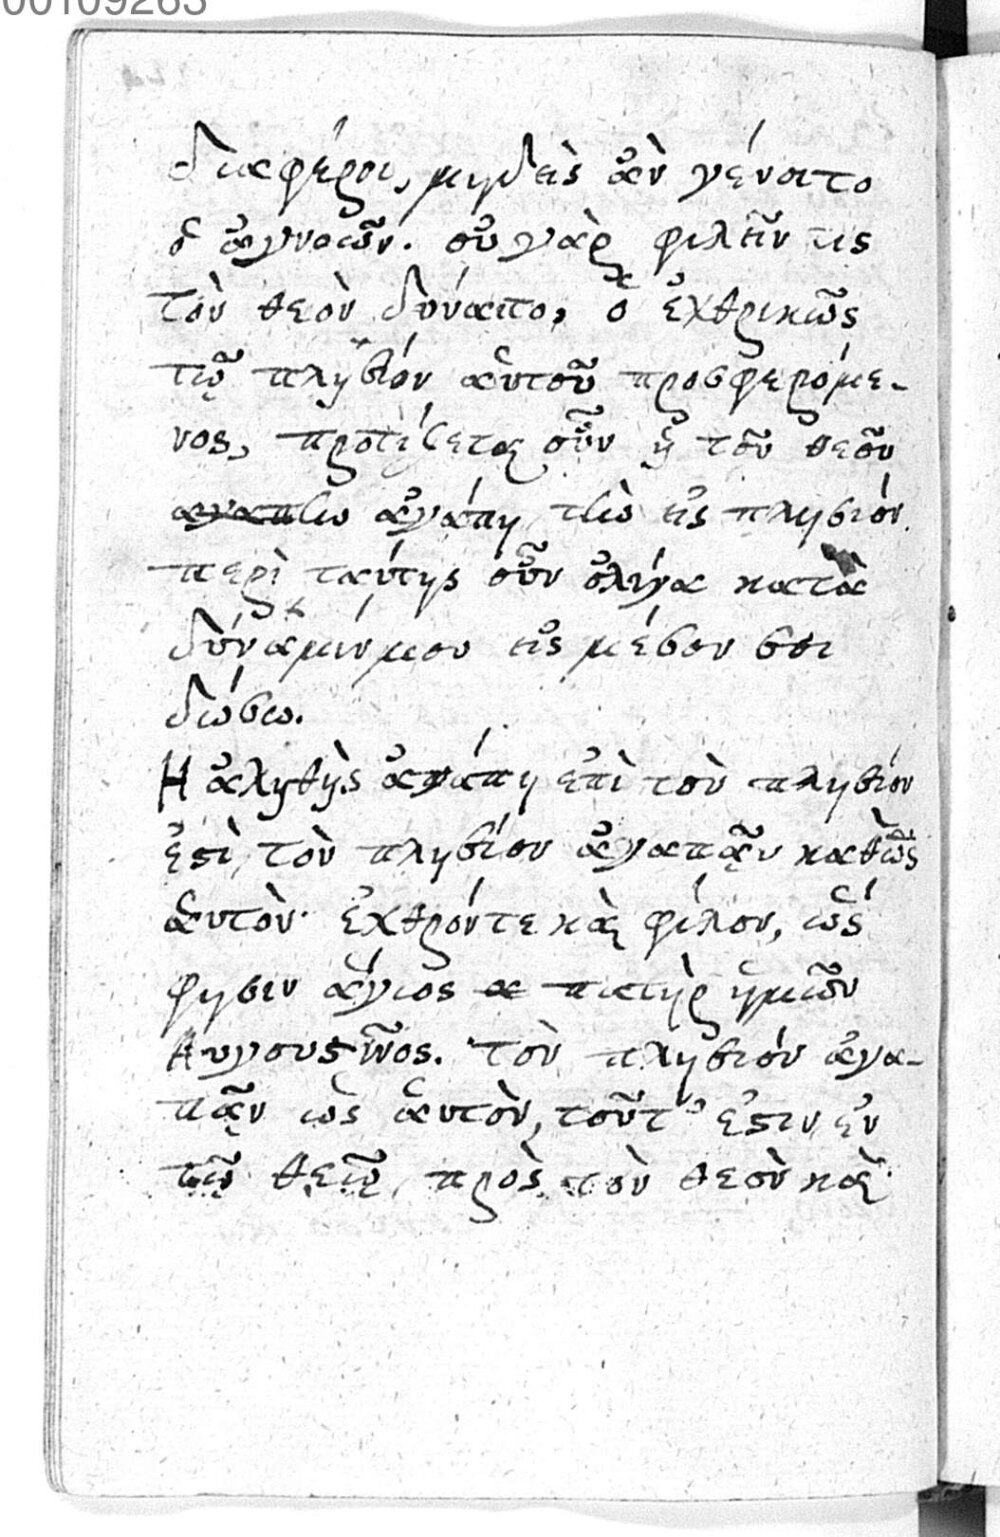 00109263
διαφέροι, μηδεὶς ἂν γένοιτο
ὁ ἀγνοῶν. οὐ γὰρ φιλεῖν τις
τὸν θεὸν δύναιτο, ὁ ἐχθρικῶς
τῷ πλησίον αὐτοῦ προσφερόμε-
νος, προτίθεται οὖν ἡ τοῦ θεοῦ
ἀγάπη τὴν εἰς πλησίον.
περὶ ταύτης οὖν ὀλίγα κατὰ
δύναμίν μου εἰς μέσον σοι
δώσω.
Η ἀληθὴς ἀγάπη ἐπὶ τὸν πλησίον
ἐστὶ, τὸν πλησίον ἀγαπᾷν καθὼς
ἑαυτὸν· ἐχθρόν τε καὶ φίλον, ὥς
φησιν ἅγιος πατὴρ ἡμῶν
Αυγουστῖνος. τὸν πλησίον ἀγα-
πᾷν ὡς ἑαυτὸν, τοῦτ' ἐστιν ἐν
τῷ θεῷ, πρὸς τὸν θεὸν καὶ